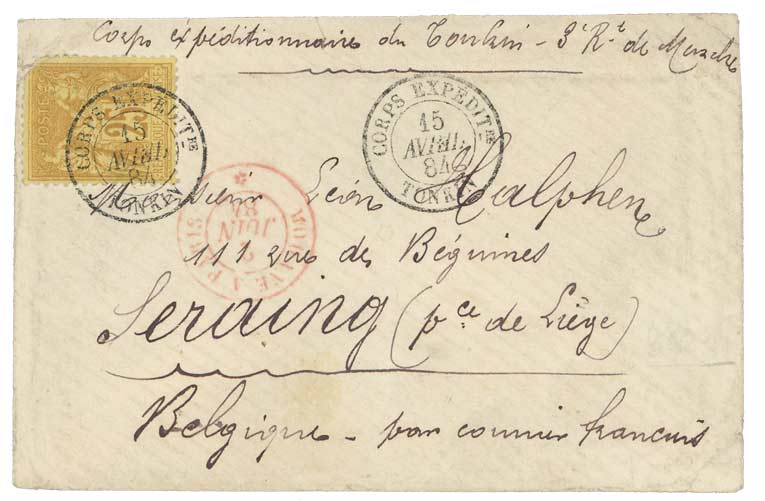 Corps expéditionnaire du Tonkin - 3e Rt de Marche
POSTES
25
CORPS EXPEDITRE
15
AVRIL
84
TONKIN
CORPS EXPEDITRE
15
AVRIL
84
TONKIN
Monsieur Léon Halphen
PARIS
2
JUIN
84
111 rue des Béguines
Seraing (pce de Liège)
Belgique - par courrier français